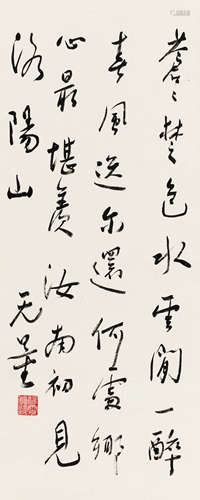 蒼〻楚色水雲間一醉
春風送尔還何處鄉
心最堪羨汝南初見
洛陽山
无量